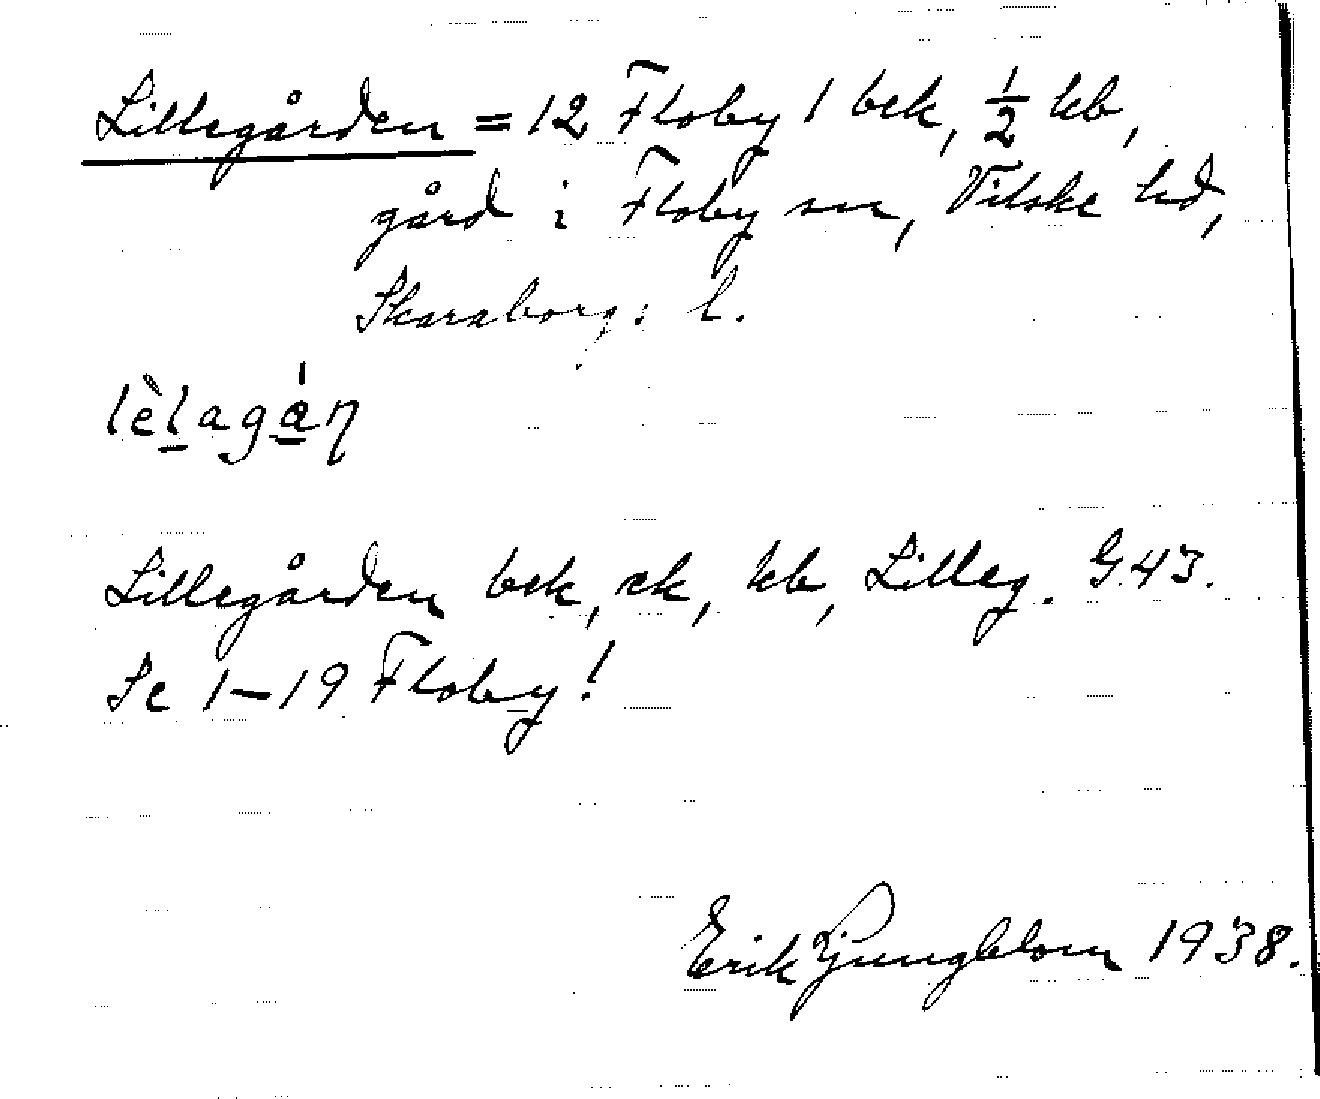 Lillegården = 12 Floby 1 bek, ½ hb,
gård i Floby sn, Vilske hd,
Skaraborgs l.
lèlagán
Lillegården bek, ek, hb, Lilleg. G.43.
Se 1–19 Floby!
Erik Ljungblom 1938.